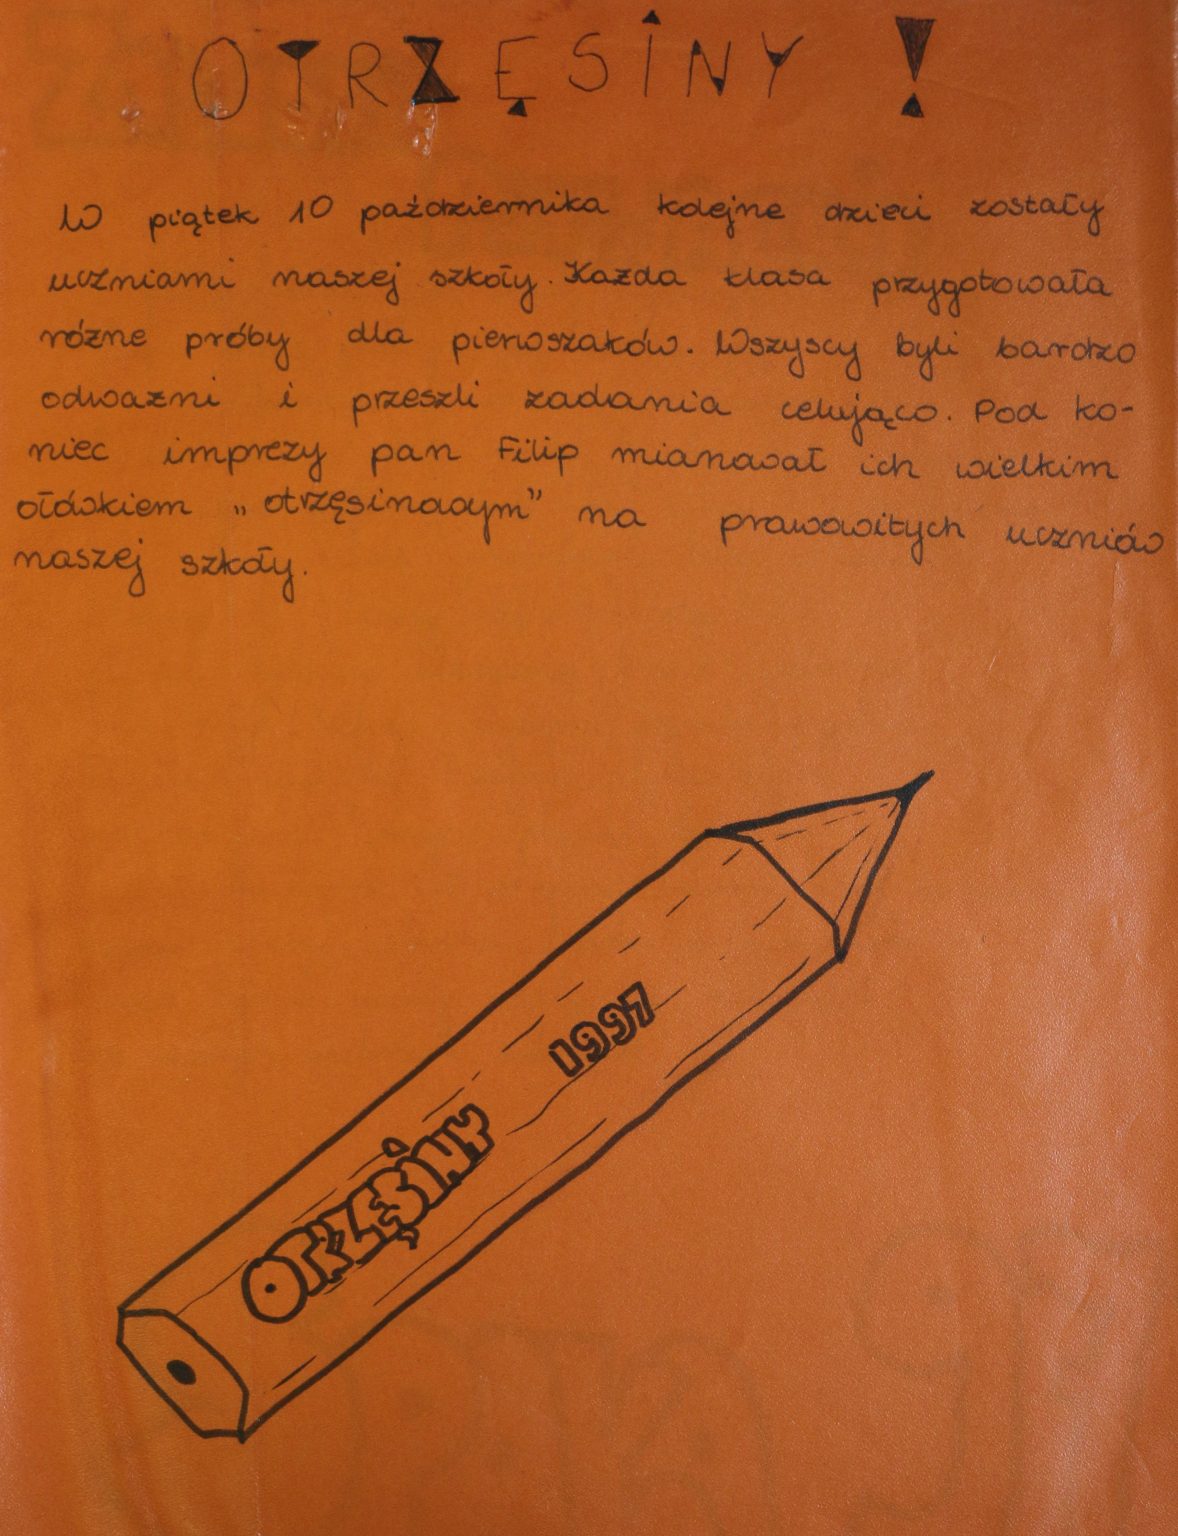 OTRZĘSINY!
W piątek 10 października kolejne dzieci zostały
uczniami naszej szkoły. Każda klasa przygotowała
różne próby dla pierwszaków. Wszyscy byli bardzo
odważni i przeszli zadania celująco. Pod ko-
niec imprezy pan Filip mianował ich wielkim
ołówkiem „otrzęsinowym” na prawowitych uczniów
naszej szkoły.
1997
OTRZĘSINY